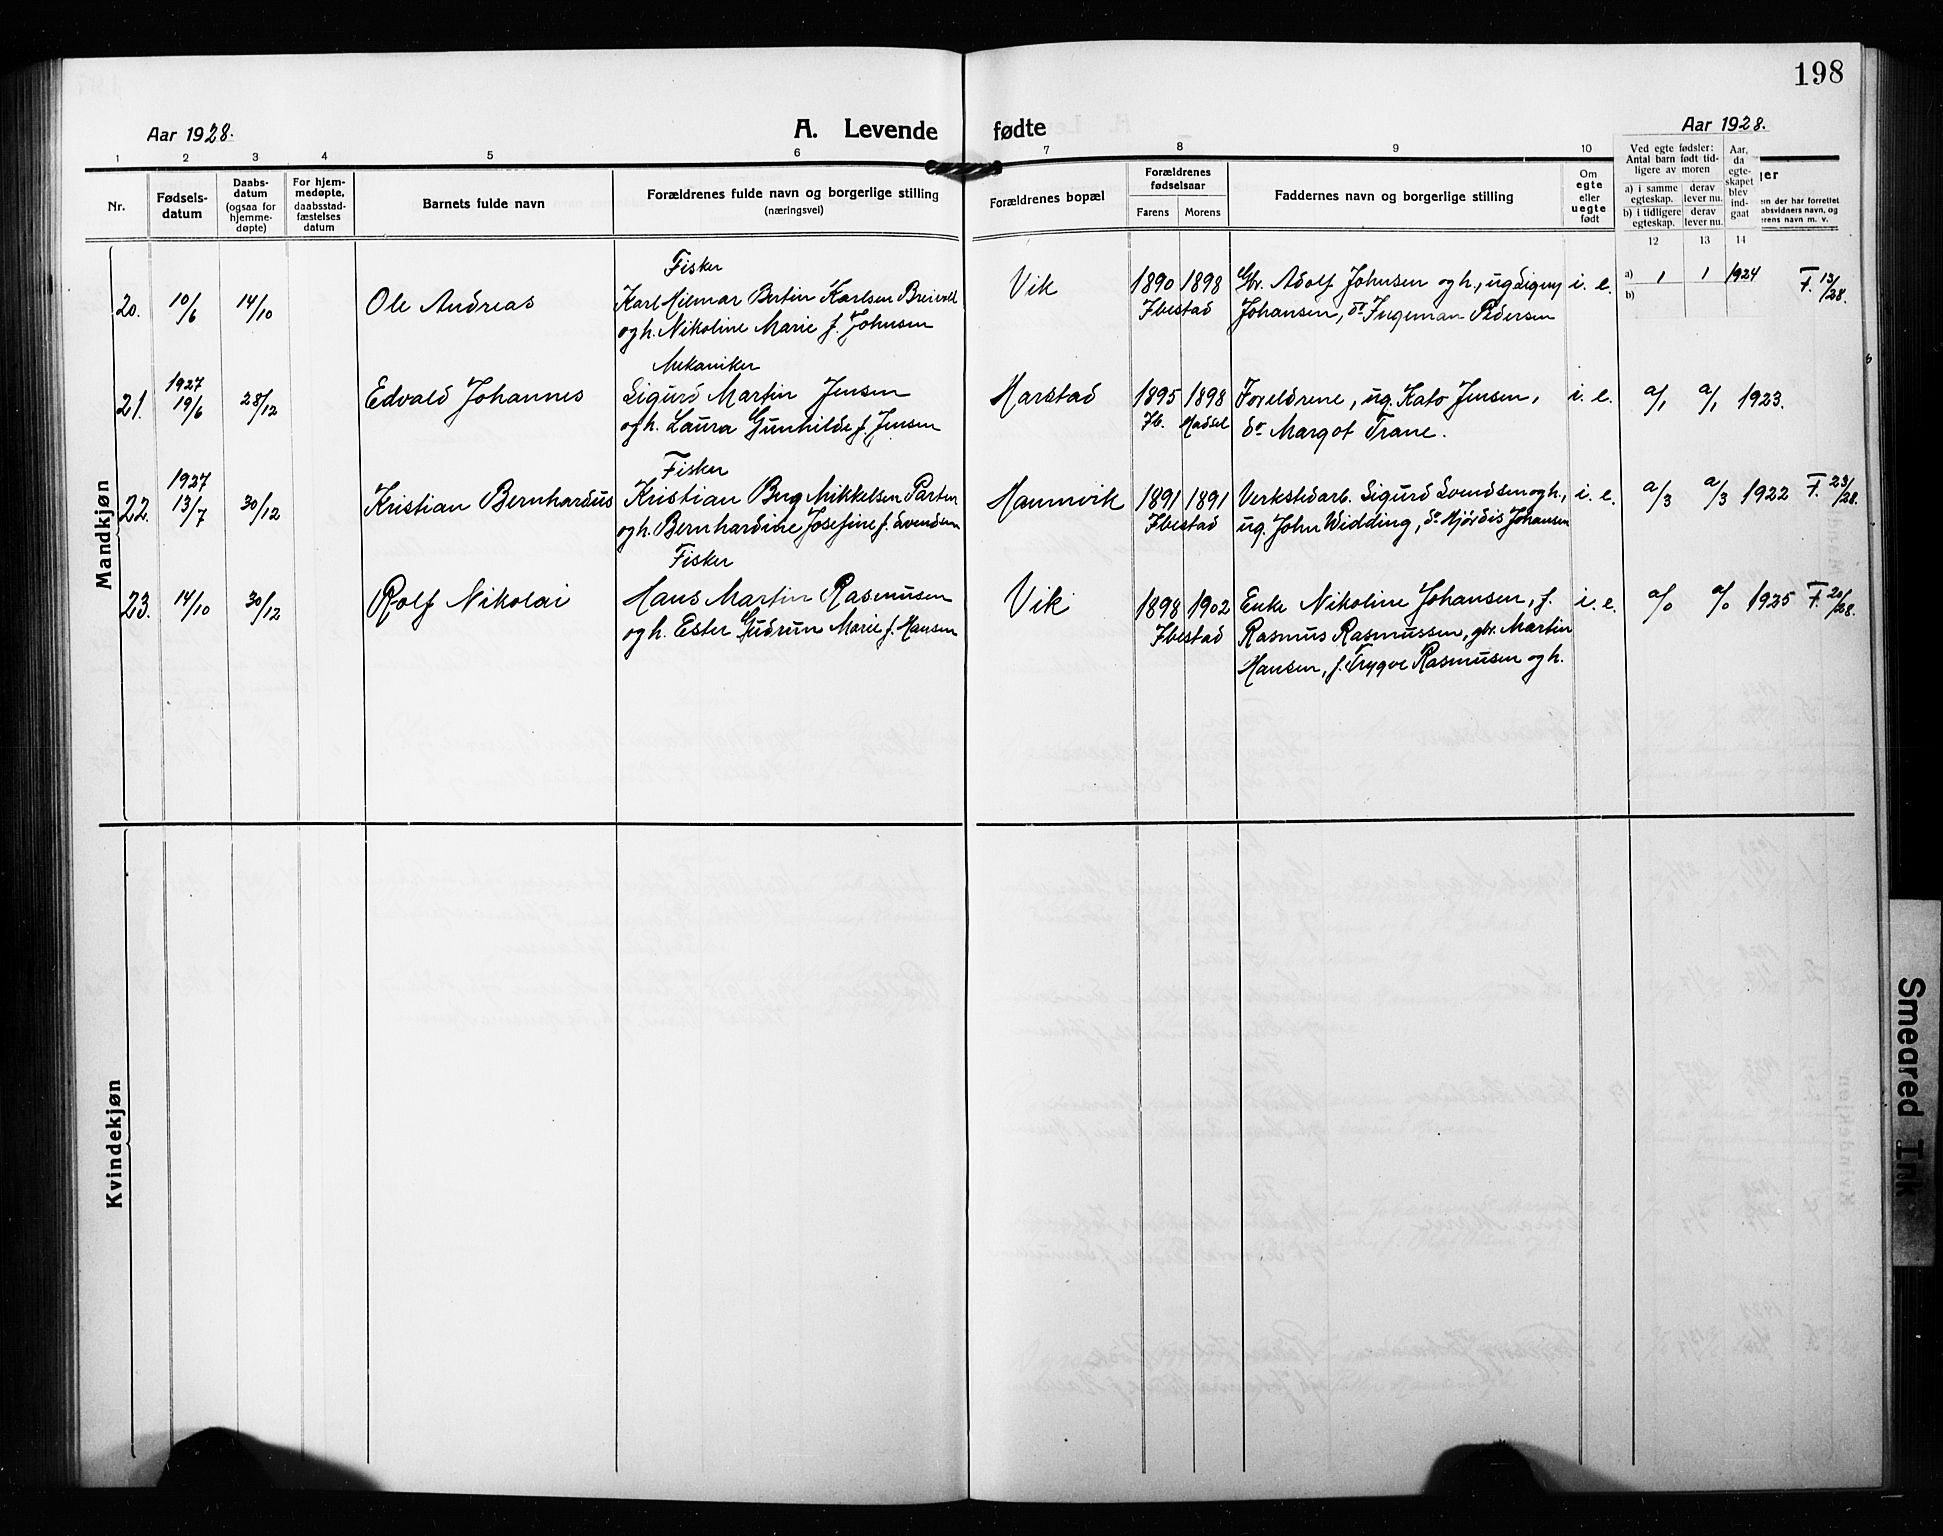 198
Aar 1928.
A. Levende fødte
Aar 1928.
1 2 3 4 5 6 7 8 9 10
Nr.
Fødsels-
datum
Daabs-
datum
(ogsaa for
hjemme-
døpte)
For hjem-
medøpte,
daabsstad-
fæstelses
datum
Barnets fulde navn
Forældrenes fulde navn og borgerlige stilling
(næringsvei)
Forældrenes bopæl
Forældrenes
fødselsaar
Farens Morens
Faddernes navn og borgerlige stilling
Om
egte
eller
uegte
født
Ved egte fødsler:
Antal barn født tid-
ligere av moren
a) i samme
egteskap.
derav
lever nu.
b) i tidligere
egteskap.
derav
lever nu.
Aar,
da
egte-
skapet
blev
ind-
gaat
12 13 14
Mandkjøn
20. 10/6 14/10 Ole Andreas
Fisker
Karl Hilmar Bertin Karlsen Breivoll
og h. Nikoline Marie f. Johnsen
Vik
1890 1898
Ibestad
Gbr. Adolf Johnsen og h., ug Signy
Johansen, do Ingeman Pedersen
i. e.
a) 1 1 1924
b)
F. 13/28.
21. 1927
19/6 28/12 Edvald Johannes
Mekaniker
Sigurd Martin Jensen
og h. Laura Gunhilde f. Jensen
Harstad
1895 1898
Ib. Hadsel
Foreldrene, ug. Kato Jensen,
do Margot Trane.
i. e.
a/1 a/1 1923.
22. 1927
13/7 30/12 Kristian Bernhardus
Fisker
Kristian Berg Mikkelsen
og h. Bernhardine Josefine f. Svendsen
Hamnvik
1891 1891
Ibestad
Verkstedarb. Sigurd Svendsen og h,
ug. John Widding, do Hjördis Johansen
i. e.
a/3 a/3 1922 F. 23/28.
23. 14/10 30/12 Rolf Nikolai
Fisker
Hans Martin Rasmusen
og h. Ester Gudrun Marie f. Hansen
Vik
1898 1902
Ibestad
Enke Nikoline Johansen, f.
Rasmus Rasmussen, gbr. Martin
Hansen, f. Trygve Rasmusen og h.
i. e.
a/0 a/0 1925 F. 20/28.
Kvindekjøn
Smeared Ink